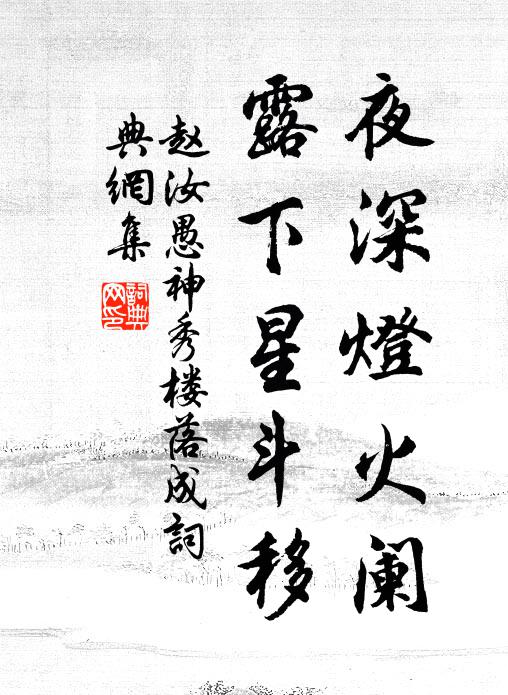 夜深燈火阑
露下星斗移
赵汝愚神秀楼落成詞
典網集
詞典网印